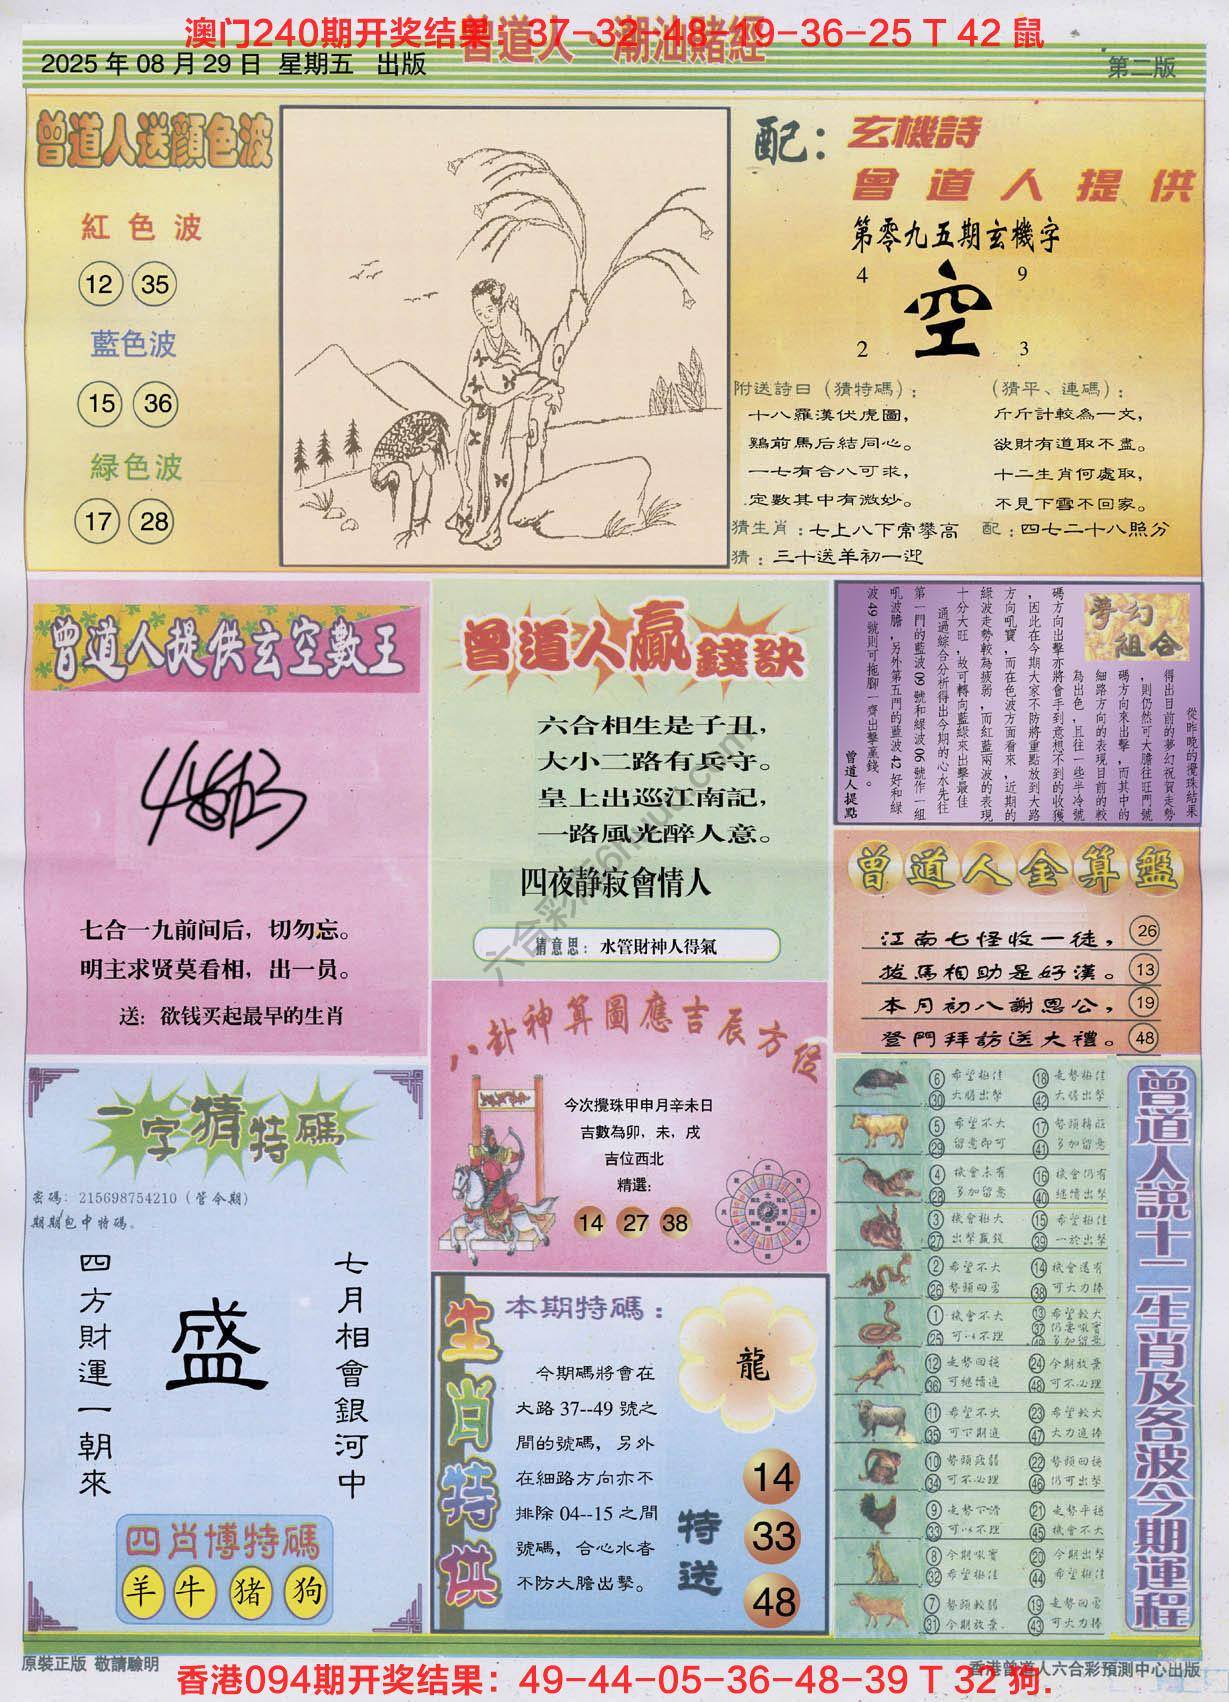 澳门240期开奖结果：37-32-48-19-36-25 T 42 鼠
曾道人·潮汕賭經
2025 年 08 月 29 日 星期五 出版
第二版
曾道人送顏色波
紅色波
12 35
藍色波
15 36
緑色波
17 28
配：玄機詩
曾道人提供
第零九五期玄機字
4 9
空
2 3
附送詩曰（猜特碼）：
十八羅漢伏虎圖，
鷄前馬后結同心。
一七有合八可求，
定數其中有微妙。
（猜平、連碼）：
斤斤計較為一文，
欲財有道取不盡。
十二生肖何處取，
不見下雪不回家。
猜生肖：七上八下常攀高 配：四七二十八照分
猜：三十送羊初一迎
曾道人提供玄空數王
七合一九前间后，切勿忘。
明主求贤莫看相，出一员。
送：欲钱买起最早的生肖
曾道人贏錢訣
六合相生是子丑，
大小二路有兵守。
皇上出巡江南記，
一路風光醉人意。
四夜静寂會情人
猜意思：水管財神人得氣
夢幻組合
從昨晚的攪珠結果
得出目前的夢幻祝賀走勢
，則仍然可大膽往旺門號
碼方向來出擊，而其中的
細路方向的表現目前的較
為出色，且往一些半冷號
碼方向出擊亦將會手到意想不到的收獲
，因此在今期大家不防將重點放到大路
方向吼寶，而在色波方面看來，近期的
綠波走勢較為疲弱，而紅藍兩波的表現
十分大旺，故可轉向藍綠來出擊最佳
通過綜合分析得出今期的心水先往
第一門的藍波09號和綠波06號作一組
吼波膽，另外第五門的藍波42好和綠
波49號則可拖腳一齊出擊贏錢。
曾道人提點
曾道人金算盤
江南七怪收一徒， 26
拔馬相助是好漢。 13
本月初八謝恩公， 19
登門拜訪送大禮。 48
八卦神算圖應吉辰方位
今次攪珠甲申月辛未日
吉數為卯，未，戌
吉位西北
精選：
14 27 38
一字猜特碼
密碼：215698754210（管今期）
期期包中特碼。
七月相會銀河中
盛
四方財運一朝來
四肖博特碼
羊 牛 猪 狗
生肖特供
本期特碼：
龍
今期碼將會在
大路 37--49 號之
間的號碼，另外
在細路方向亦不
排除 04--15 之間
號碼，合心水者
不防大膽出擊。
特送
14
33
48
曾道人說十二生肖及各波今期運程
6 希望極佳 18 走勢極佳
30 大膽出擊 42 大膽出擊
5 希望不大 17 勢頭精旺
29 留意即可 41 多加留意
4 機會未有 16 機會仍有
28 多加留意 40 繼續出擊
3 機會極大 15 希望極佳
27 出擊贏錢 39 一於出擊
2 希望不大 14 機會還有
26 勢頭回勇 38 可大力捧
1 機會不大 13 希望較大
37 仍要吼寶
25 可以不理 49 多加留意
12 走勢回穩 24 今期放棄
36 可繼續進 48 可不必理
11 希望不大 23 希望較大
35 可下期追 47 大力追捧
10 勢頭疲弱 22 勢頭回穩
34 可不必理 46 仍可出擊
9 走勢下滑 21 走勢平穩
33 可以不理 45 機會不大
8 今期吼寶 20 今期出擊
32 希望極佳 44 希望極佳
7 勢頭較弱 19 走勢回勇
31 今期放棄 43 可大力捧
原裝正版 敬請驗明
香港曾道人六合彩預測中心出版
香港094期开奖结果：49-44-05-36-48-39 T 32 狗.